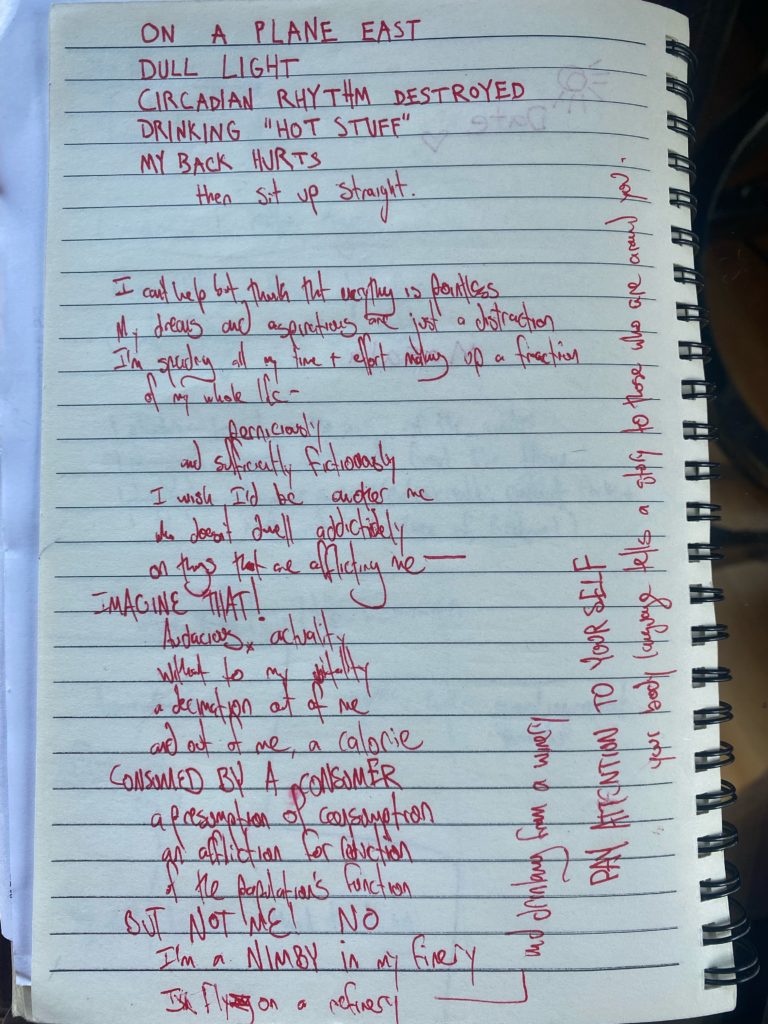 ON A PLANE EAST
DULL LIGHT
CIRCADIAN RHYTHM DESTROYED
DRINKING "HOT STUFF"
MY BACK HURTS
then sit up straight.
I can't help but think that everything is pointless
My dreams and aspirations are just a distraction
I'm spending all my time + effort making up a fraction
of my whole life -
perniciously
and sufficiently fictitiously
I wish I'd be another me
who doesn't dwell addictively
on things that are afflicting me —
IMAGINE THAT!
Audacious actuality
to my vitality
a decimation out of me
and out of me, a calorie
CONSUMED BY A CONSUMER
a presumption of consumption
an affliction for
of the population's function
BUT NOT ME! NO
I'm a NIMBY in my finery
I'm on a refinery
and drinking from a winery
PAY ATTENTION TO YOURSELF
your body language tells a story to those who are around you.
Date